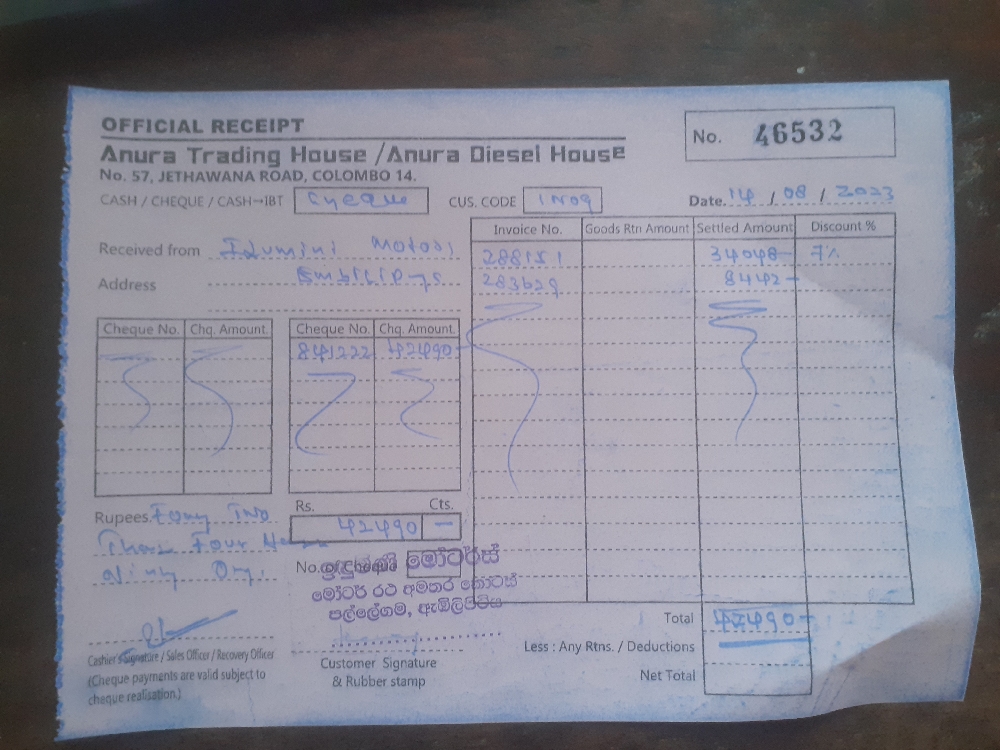 OFFICIAL RECEIPT
No. 46532
Anura Trading House /Anura Diesel House
No. 57, JETHAWANA ROAD, COLOMBO 14.
CASH / CHEQUE / CASH→IBT Cheque CUS. CODE IN09 Date. 14 / 08 / 2023
Invoice No. Goods Rtn Amount Settled Amount Discount %
Received from Idumini Motors
288151 34048- 7%
Address Embilip
283629 8442-
Cheque No. Chq. Amount Cheque No. Chq. Amount
841222 42490-
Rs. Cts.
Rupees. Forty Two
42490 -
Thou Four
Ninty Only.
No. of Cheque
ඉදුමිණි මෝටර්ස්
මෝටර් රථ අමතර කොටස්
පල්ලේගම, ඇඹිලිපිටිය
Total 42490-
Less : Any Rtns. / Deductions
Net Total
Cashier's signature / Sales Officer / Recovery Officer
(Cheque payments are valid subject to
cheque realisation.)
Customer Signature
& Rubber stamp